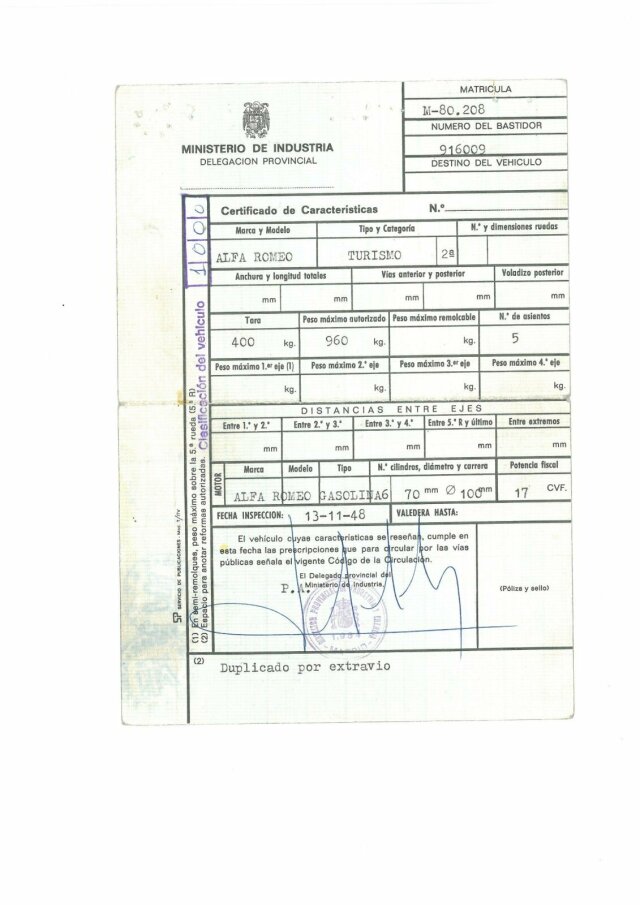 MATRICULA
M-80.208
NUMERO DEL BASTIDOR
916009
DESTINO DEL VEHICULO
MINISTERIO DE INDUSTRIA
DELEGACION PROVINCIAL
Certificado de Características N.º
Marca y Modelo Tipo y Categoría N.º y dimensiones ruedas
ALFA ROMEO TURISMO 2ª
Anchura y longitud totales Vías anterior y posterior Voladizo posterior
mm mm mm mm mm
Tara Peso máximo autorizado Peso máximo remolcable N.º de asientos
400 kg. 960 kg. kg. 5
Peso máximo 1.er eje (1) Peso máximo 2.º eje Peso máximo 3.er eje Peso máximo 4.º eje
kg. kg. kg. kg.
DISTANCIAS ENTRE EJES
Entre 1.º y 2.º Entre 2.º y 3.º Entre 3.º y 4.º Entre 5.ª R y último Entre extremos
mm mm mm mm mm
MOTOR
Marca Modelo Tipo N.º cilindros, diámetro y carrera Potencia fiscal
ALFA ROMEO GASOLINA 6 70 mm Ø 100 mm 17 CVF.
FECHA INSPECCION: 13-11-48 VALEDERA HASTA:
El vehículo cuyas características se reseñan, cumple en
esta fecha las prescripciones que para circular por las vías
públicas señala el vigente Código de la Circulación.
El Delegado provincial del
P.A. Ministerio de Industria,
(Póliza y sello)
MADRID
(2) Duplicado por extravio
Clasificación del vehículo 1000
(1) En semi-remolques, peso máximo sobre la 5.ª rueda (5.ª R)
(2) Espacio para anotar reformas autorizadas.
SP SERVICIO DE PUBLICACIONES